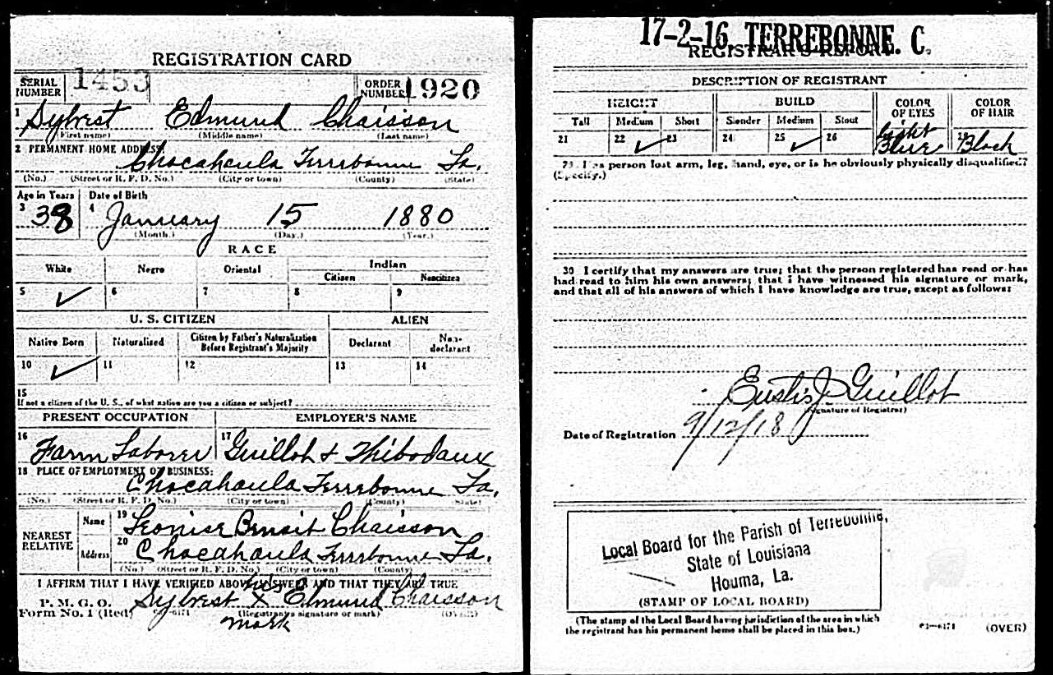 REGISTRATION CARD
SERIAL NUMBER 1453 ORDER NUMBER 1920
1 Sylvest Edmund Chaisson
(First name) (Middle name) (Last name)
2 PERMANENT HOME ADDRESS:
Chocahoula Terrebonne La.
(No.) (Street or R. F. D. No.) (City or town) (County) (State)
Age in Years Date of Birth
3 38 4 January 15 1880
(Month.) (Day.) (Year.)
RACE
White Negro Oriental Indian
Citizen Noncitizen
5 ✓ 6 7 8 9
U. S. CITIZEN ALIEN
Native Born Naturalized Citizen by Father's Naturalization Before Registrant's Majority Declarant Non-declarant
10 ✓ 11 12 13 14
15
If not a citizen of the U. S., of what nation are you a citizen or subject?
PRESENT OCCUPATION EMPLOYER'S NAME
16 Farm Laborer 17 Guillot & Thibodaux
18 PLACE OF EMPLOYMENT OR BUSINESS:
Chocahoula Terrebonne La.
(No.) (Street or R. F. D. No.) (City or town) (County) (State)
NEAREST RELATIVE Name 19 Leonise Benoit Chaisson
Address 20 Chocahoula Terrebonne La.
(No.) (Street or R. F. D. No.) (City or town) (County) (State)
I AFFIRM THAT I HAVE VERIFIED ABOVE ANSWERS AND THAT THEY ARE TRUE
his
P. M. G. O.
Form No. 1 (Red) Sylvest X Edmund Chaisson
(Registrant's signature or mark) (OVER)
mark
17-2-16 TERREBONNE. C.
REGISTRAR'S REPORT
DESCRIPTION OF REGISTRANT
HEIGHT BUILD COLOR OF EYES COLOR OF HAIR
Tall Medium Short Slender Medium Stout
21 22 ✓ 23 24 25 ✓ 26 Light Blue 28 Black
29 Has person lost arm, leg, hand, eye, or is he obviously physically disqualified?
(Specify.)
30 I certify that my answers are true; that the person registered has read or has
had read to him his own answers; that I have witnessed his signature or mark,
and that all of his answers of which I have knowledge are true, except as follows:
Eustis J Guillot
(Signature of Registrar)
Date of Registration 9/12/18
Local Board for the Parish of Terrebonne,
State of Louisiana
Houma, La.
(STAMP OF LOCAL BOARD)
(The stamp of the Local Board having jurisdiction of the area in which
the registrant has his permanent home shall be placed in this box.)
(OVER)